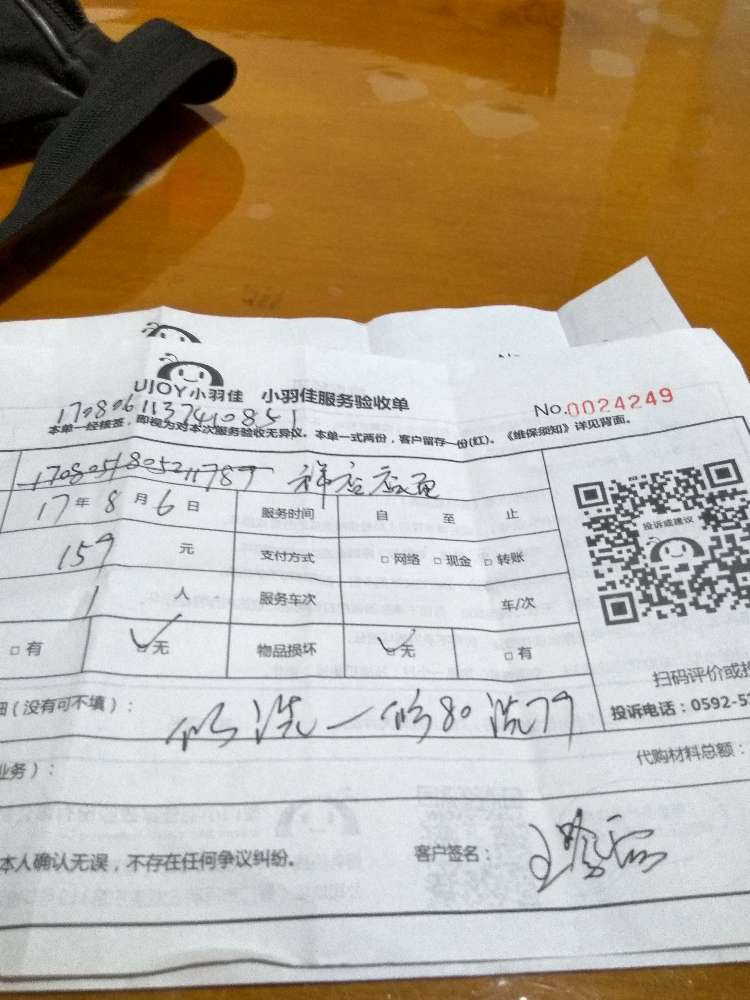 UJOY小羽佳 小羽佳服务验收单
No.0024249
170806113740851
本单一经核签，即视为对本次服务验收无异议。本单一式两份，客户留存一份(红)。《维保须知》详见背面。
17 年 8 月 6 日 服务时间 自 至 止
投诉或建议
159 元 支付方式 □网络 □现金 □转账
1 人 服务车次 车/次
□有 □无 物品损坏 □无 □有
扫码评价或投
（没有可不填）： 修洗一修80洗79
投诉电话：0592-5
业务）：
代购材料总额：
本人确认无误，不存在任何争议纠纷。 客户签名：